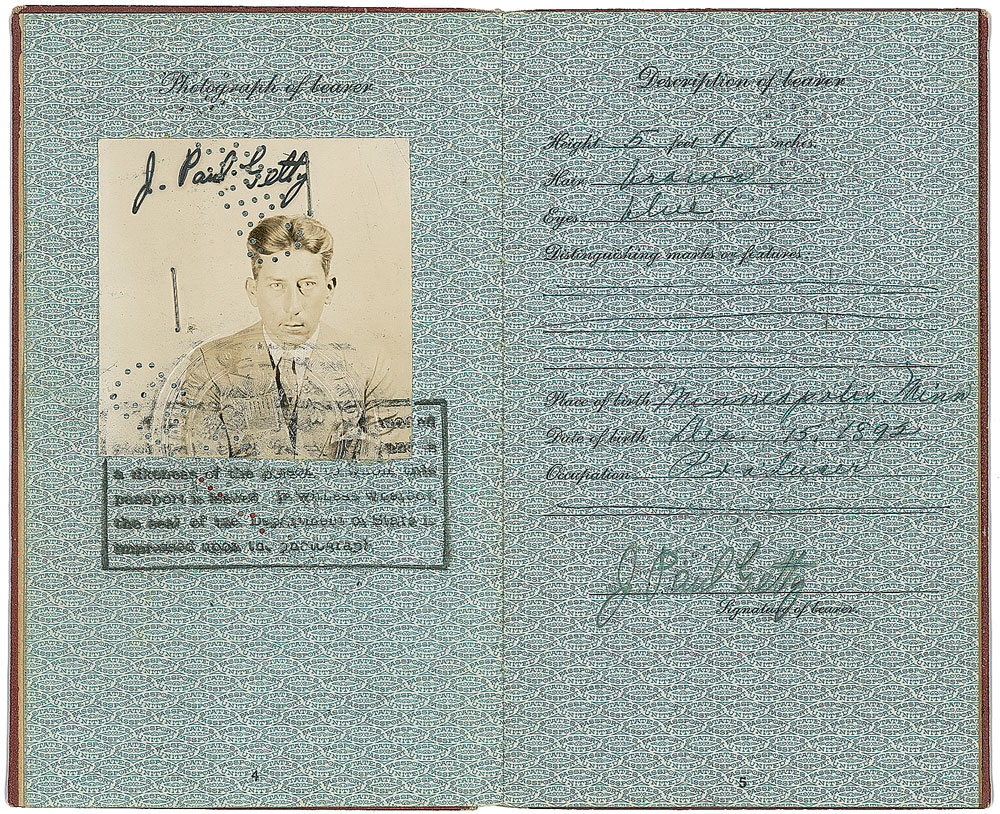 Photograph of bearer
J. Paul Getty
a likeness of the person to whom this
passport is issued. In witness whereof
the seal of the Department of State is
impressed upon the photograph
4
Description of bearer
Height 5 feet 11 inches.
Hair brown
Eyes blue
Distinguishing marks or features
Place of birth Minneapolis Minn
Date of birth Dec. 15, 1892
Occupation Producer
J Paul Getty
Signature of bearer.
5